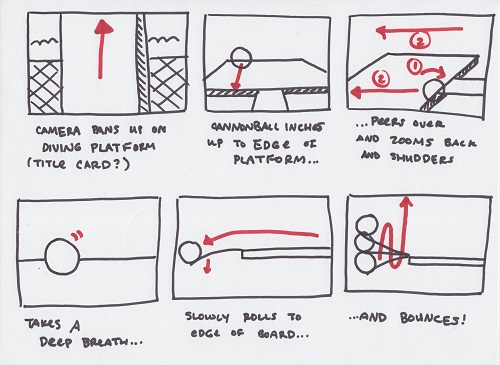 CAMERA PANS UP ON
DIVING PLATFORM
(TITLE CARD?)
CANNONBALL INCHES
UP TO EDGE OF
PLATFORM...
2
1
2
...PEERS OVER
AND ZOOMS BACK
AND SHUDDERS
TAKES A
DEEP BREATH...
SLOWLY ROLLS TO
EDGE OF BOARD...
...AND BOUNCES!